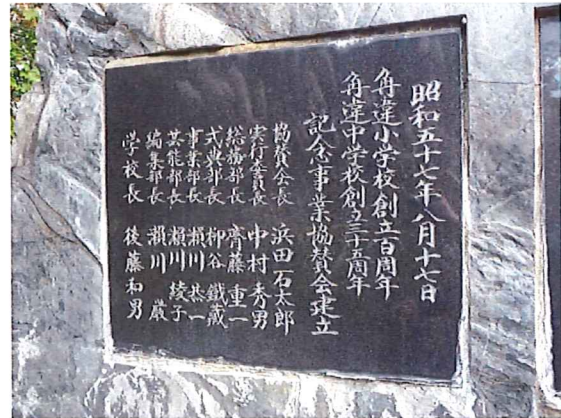 昭和五十七年八月十七日
舟違小学校創立百周年
舟違中学校創立三十五周年
記念事業協賛会建立
協賛会長 浜田石太郎
実行委員長 中村秀男
総務部長 齊藤重一
式典部長 柳谷鐵蔵
事業部長 瀬川恭一
芸能部長 瀬川綾子
編集部長 瀬川巌
学校長 後藤和男